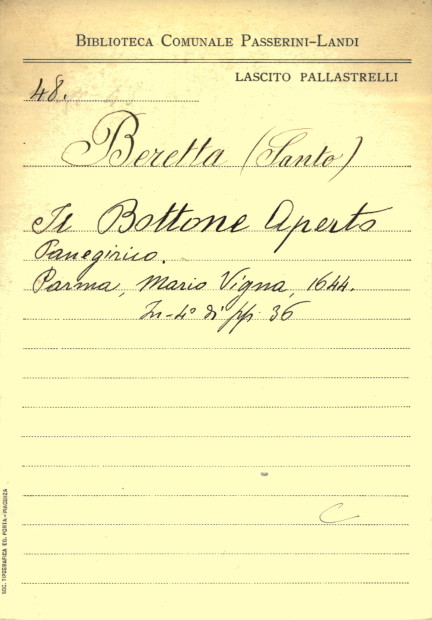 BIBLIOTECA COMUNALE PASSERINI-LANDI
LASCITO PALLASTRELLI
48.
Beretta (Santo)
Il Bottone Aperto
Panegirico.
Parma, Mario Vigna, 1644.
In-4° di pp 36
C
SOC. TIPOGRAFICA ED. PORTA - PIACENZA